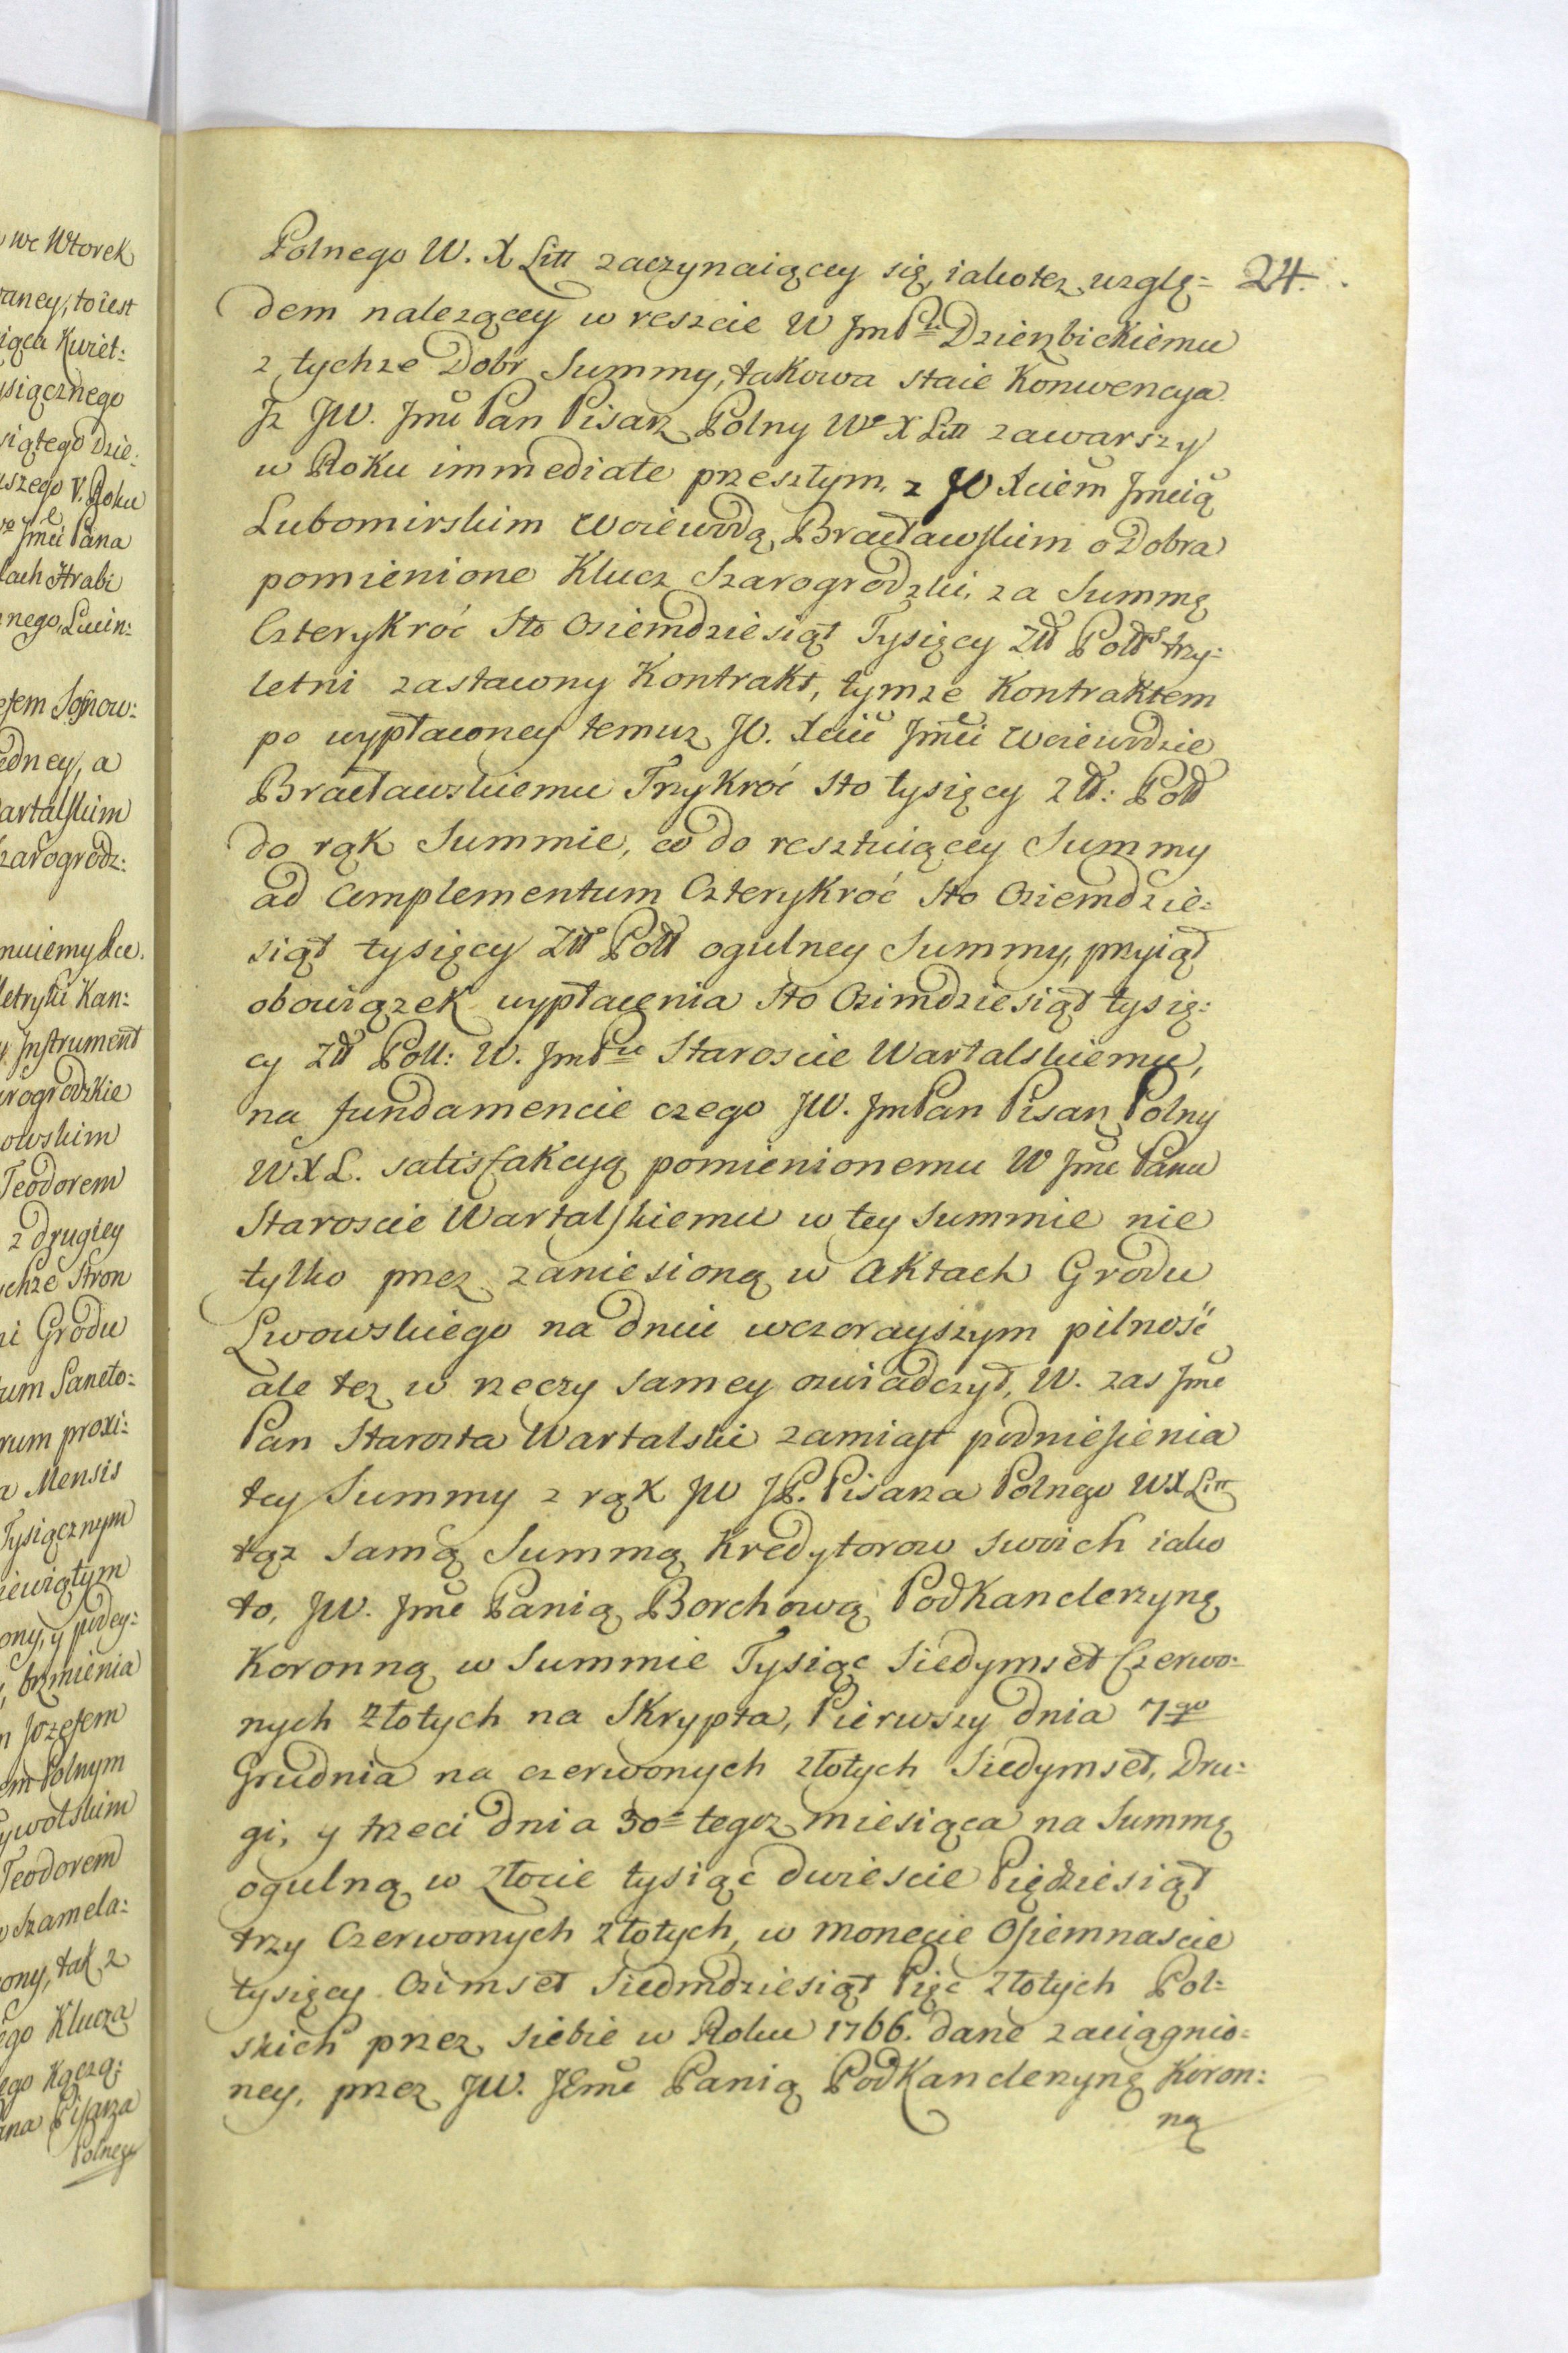 we Wtorek
raney, to iest
iąca Kwiet:
ysiącznego
siątego Dzie:
uszego V. Roku
Jmci Pana
łach Hrabi
nego, Lucin:
efem Sosnow:
edney, a
artalskim
zarogrodz:
muiemy
letryki Kan:
y. Jnstrument
rogrodzkie
owskim
Teodorem
z drugiey
ychże Stron
ni Grodu
um Sancto:
rum proxi:
a Mensis
Tysiącznym
iewiątym
ony, y podey:
, brzmienia
m Jozefem
em Polnym
ywolskim
Teodorem
w Szamela:
ony, tak z
ego Klucza
ego Kączą:
ana Pisarza
Polnego
24.
Polnego W. X Litt zaczynaiącey się, iakotez wzglę=
dem nalezącey w reszcie W JmPu Dzierzbickiemu
z tychze Dobr Summy, takowa staie Konwencya.
Jz JW. Jmć Pan Pisarz Polny Wo X Litt zawarszy
w Roku immediate przeszłym, z JO Xciem Jmcią
Lubomirskim Woiewodą Bracławskim o Dobra
pomienione Klucz Szarogrodzki, za Summę
Czterykroć Sto Osiemdziesiąt Tysięcy Złł Polłs trzy=
letni zastawny Kontrakt, tymze Kontraktem
po wypłaconey temuz JO. Xciu Jmci Woiewodzie
Bracławskiemu Trzykroć Sto tysięcy Złł: Poll
do rąk Summie, co do resztuiącey Summy
ad Complementum Czterykroć Sto Osiemdzie=
siąt tysięcy Złł Poll ogulney Summy, przyiął
obowiązek wypłacenia Sto Ozimdziesiąt tysię:
cy Złł Poll: W. JmPu Staroscie Wartalskiemu,
na fundamencie czego JW. JmPan Pisarz Polny
W X L. satisfakcyą pomienionemu W Jmć Panu
Staroscie Wartalskiemu w tey Summie nie
tylko przez zaniesioną w Aktach Grodu
Lwowskiego na dniu wczorayszym pilność
ale tez w rzeczy samey oswiadczył, W. zas Jmć
Pan Starosta Wartalski zamiast podniesienia
tey Summy z rąk JW JP. Pisarza Polnego WXLitt
tąz samą Summą Kredytorow swoich iako
to, JW. Jmć Panią Borchową PodKanclerzynę
Koronną w Summie Tysiąc Siedymset Czerwo=
nych Złotych na Skrypta, Pierwszy dnia 7go
Grudnia na czerwonych złotych Siedymset, Dru=
gi, y trzeci dnia 30o tegoz miesiąca na Summę
ogulną w Złocie tysiąc dwieście Pięćdziesiąt
trzy Czerwonych złotych, w monecie Osiemnascie
tysięcy Ozimset Siedmdziesiąt Pięc Złotych Pol=
skich przez siebie w Roku 1766. dane zaciągnio=
ney, przez JW. JEmć Panią PodKanclerzynę Koron:
ną